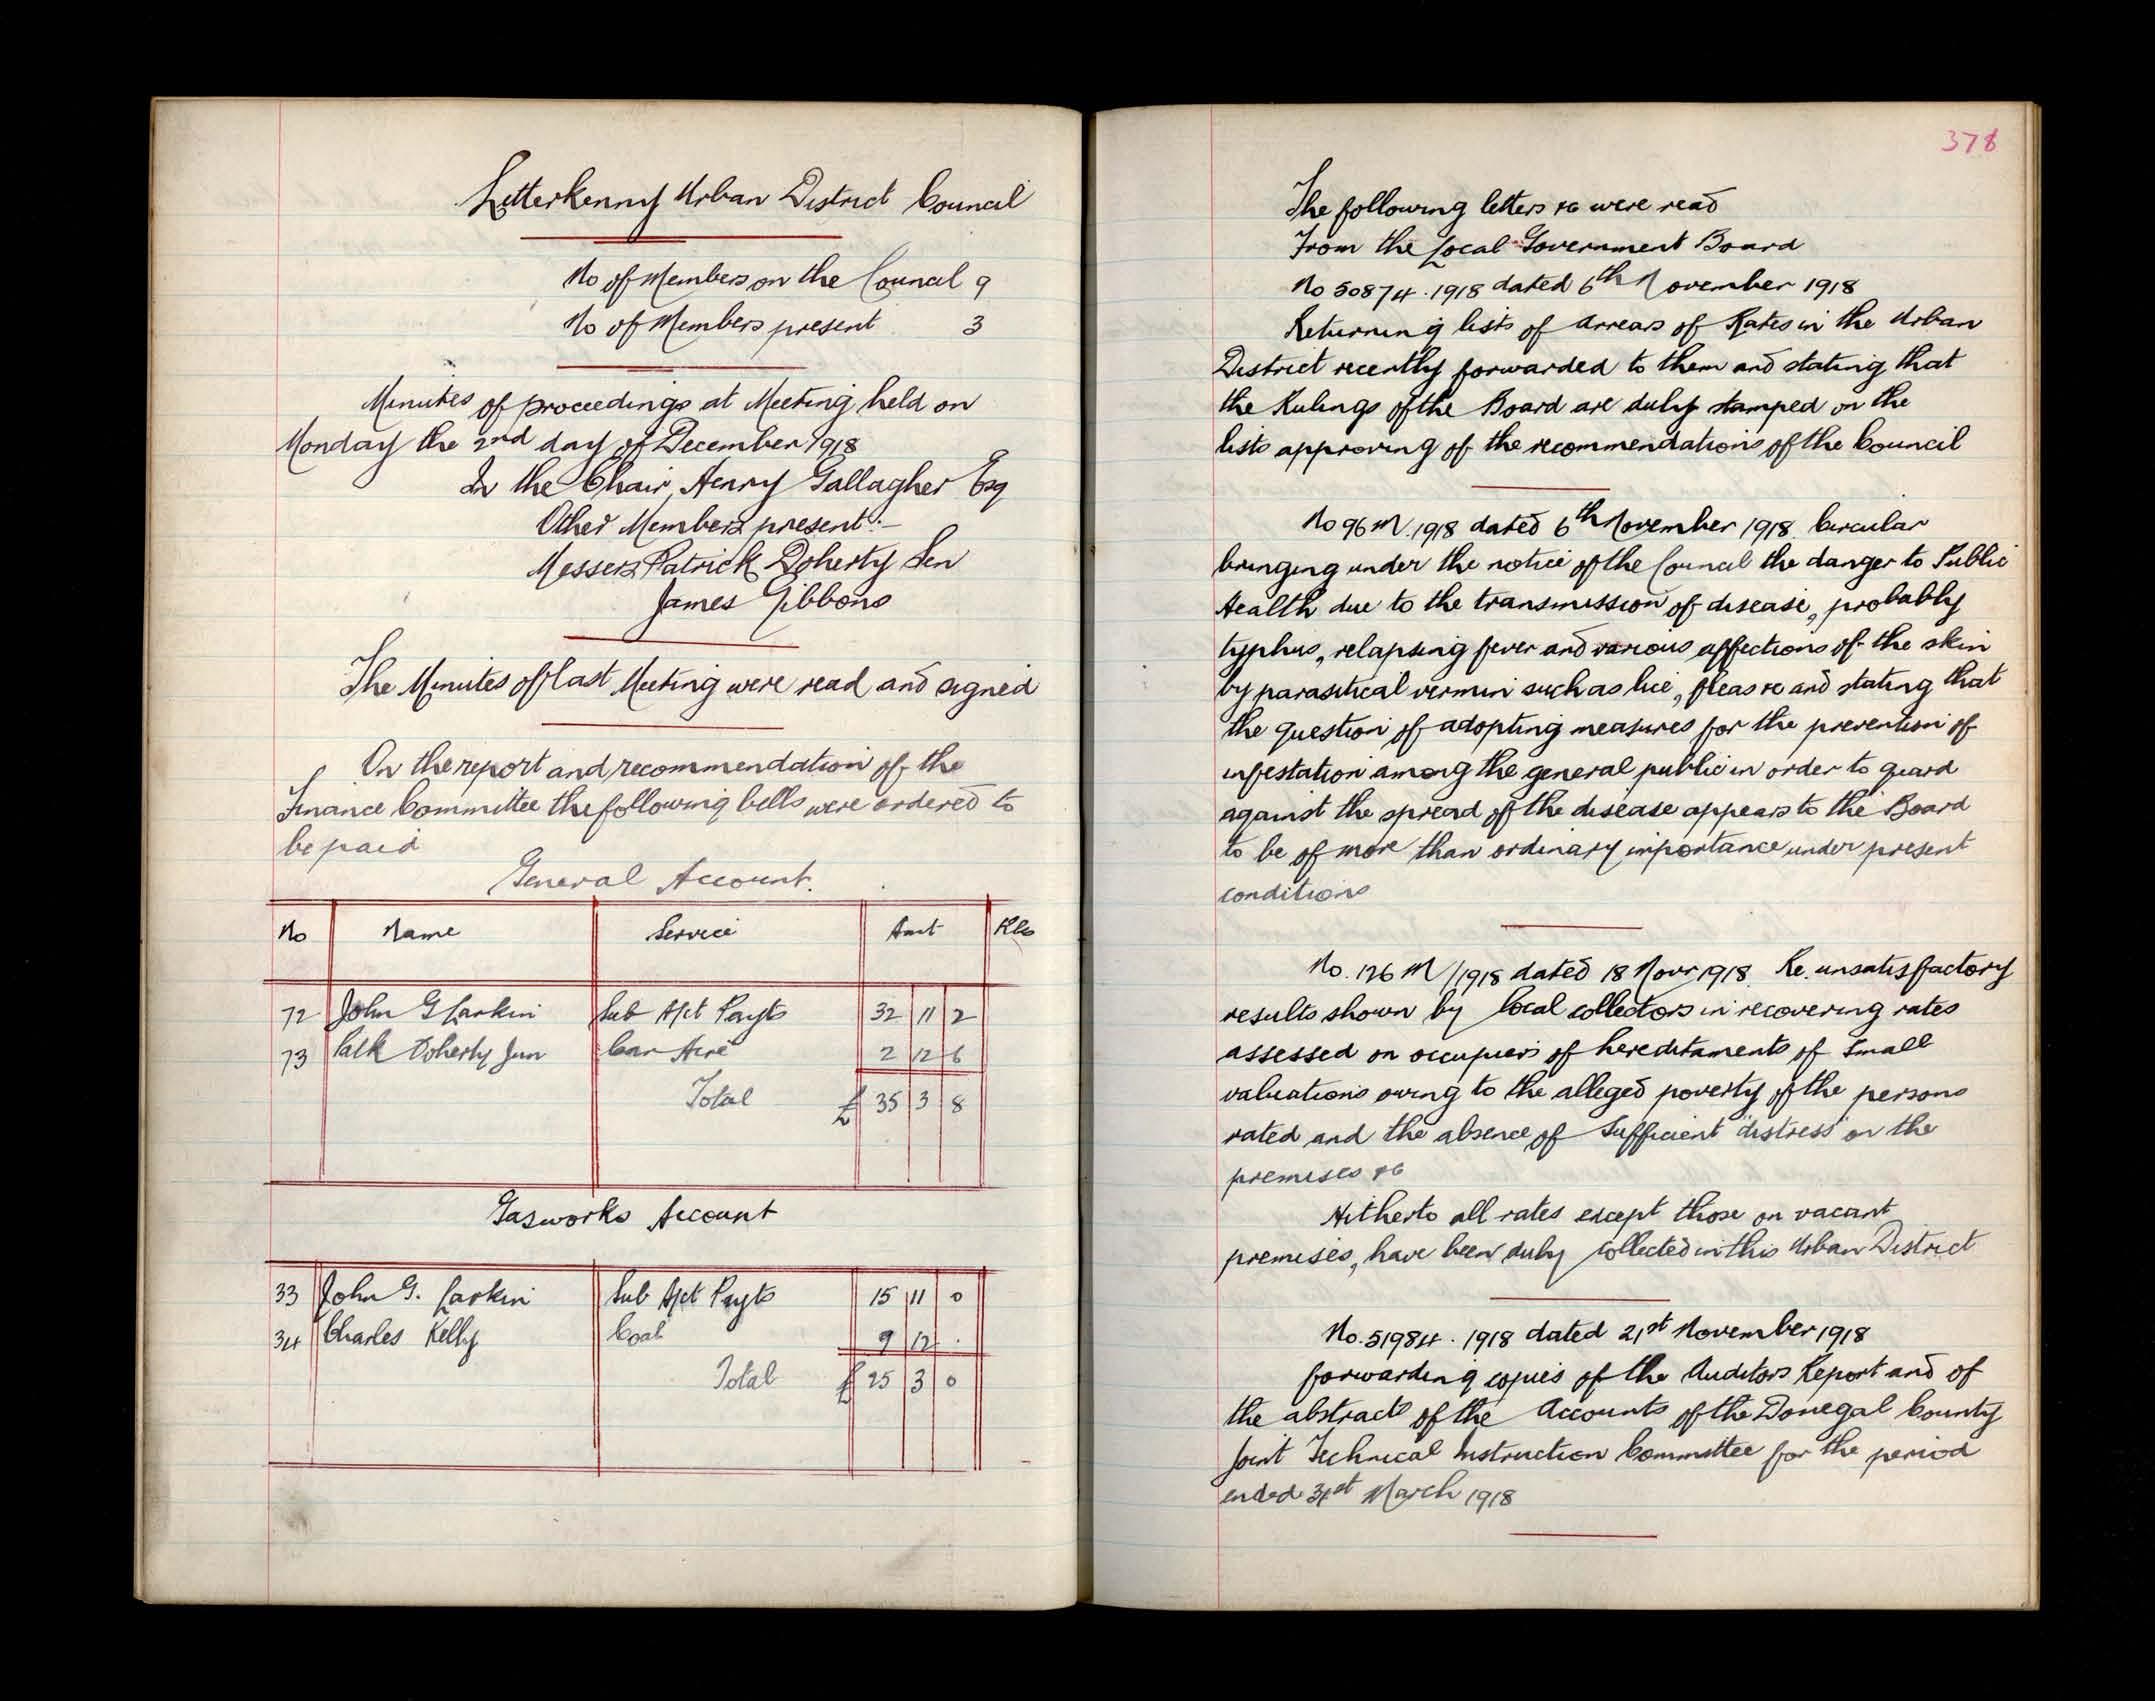 Letterkenny Urban District Council
No of Members on the Council 9
No of Members present 3
Minutes of proceedings at Meeting held on
Monday the 2nd day of December 1918
In the Chair, Henry Gallagher Esq
Other Members present:-
Messers Patrick Doherty Sen
James Gibbons
The Minutes of last Meeting were read and signed
On the report and recommendation of the
Finance Committee the following bills were ordered to
be paid
General Account.
No Name Service Amt
72 John G Larkin Sub Acct Payts 32 11 2
73 Patk Doherty Jun Car Hire 2 12 6
Total £ 35 3 8
Gasworks Account
33 John G. Larkin Sub Acct Payts 15 11 0
34 Charles Kelly Coal 9 12 .
Total £ 25 3 0
378
The following letters &c were read
From the Local Government Board
No 50874. 1918 dated 6th November 1918
Returning lists of Arrears of Rates in the Urban
District recently forwarded to them and stating that
the Rulings of the Board are duly stamped on the
lists approving of the recommendations of the Council
No 96 M. 1918 dated 6th November 1918. Circular
bringing under the notice of the Council the danger to Public
Health due to the transmission of disease, probably
typhus, relapsing fever and various affections of the skin
by parasitical vermin such as lice, fleas &c and stating that
the question of adopting measures for the prevention of
infestation among the general public in order to guard
against the spread of the disease appears to the Board
to be of more than ordinary importance under present
conditions
No. 126 M/1918 dated 18 Novr 1918. Re. unsatisfactory
results shown by local collectors in recovering rates
assessed on occupiers of hereditaments of small
valuations owing to the alleged poverty of the persons
rated and the absence of sufficient "distress" on the
premises &c
Hitherto all rates except those on vacant
premises, have been duly collected in this Urban District
No. 51984. 1918 dated 21st November 1918
forwarding copies of the Auditors Report and of
the abstract of the Accounts of the Donegal County
Joint Technical Instruction Committee for the period
ended 31st March 1918